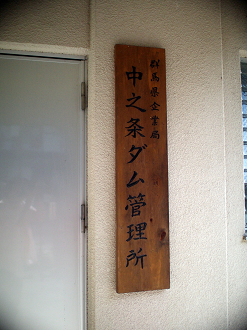 群馬県企業局
中之条ダム管理所